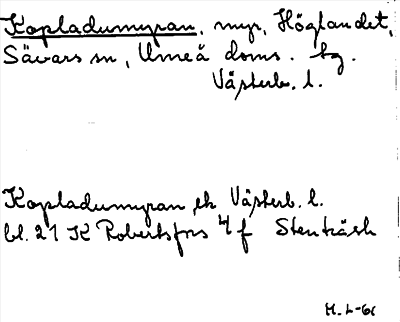 Kopladumyran, myr, Höglandet,
Sävars sn, Umeå doms. tg.
Västerb. l.
Kopladumyran ek Västerb. l.
bl. 21 K Robertsfors 4 f Stenträsk
M. L-66